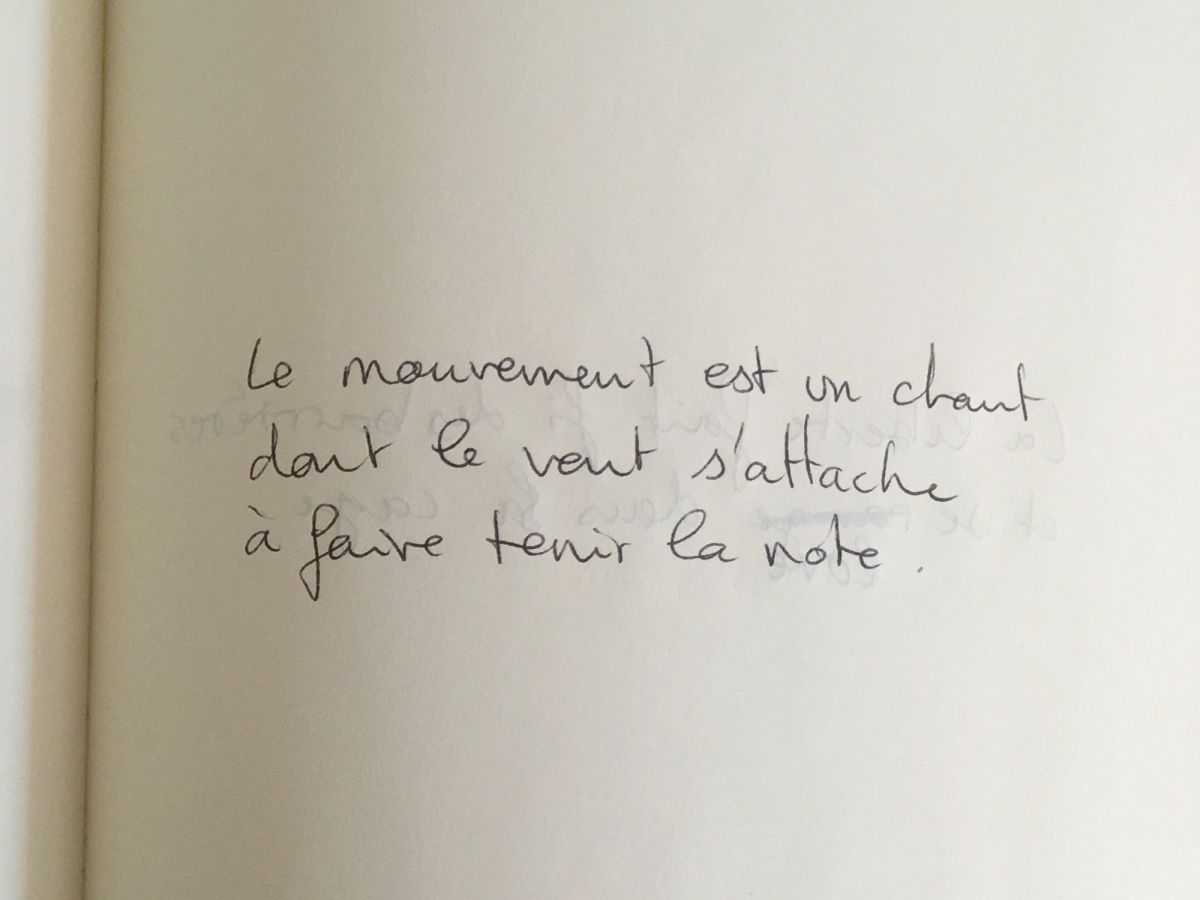 Le mouvement est un chant
dont le vent s'attache
à faire tenir la note.